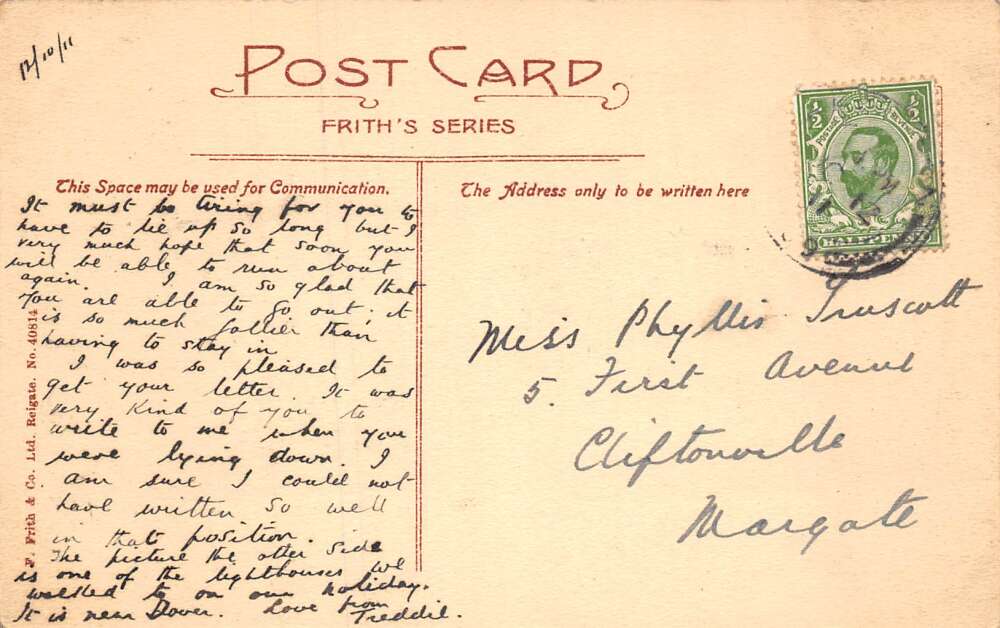 12/10/11
POST CARD
FRITH'S SERIES
This Space may be used for Communication.
The Address only to be written here
It must be tiring for you to
have to lie up so long but I
very much hope that soon you
will be able to run about
again. I am so glad that
you are able to go out; it
is so much jollier than
having to stay in
I was so pleased to
get your letter. It was
very kind of you to
write to me when you
were lying down. I
am sure I could not
have written so well
in that position.
The picture the other side
is one of the lighthouses we
walked to on our holiday.
It is near Dover. Love from
Freddie.
F. Frith & Co. Ltd., Reigate. No. 40814
½ ½
POSTAGE REVENUE
HALFPENNY
Miss Phyllis Truscott
5. First Avenue
Cliftonville
Margate